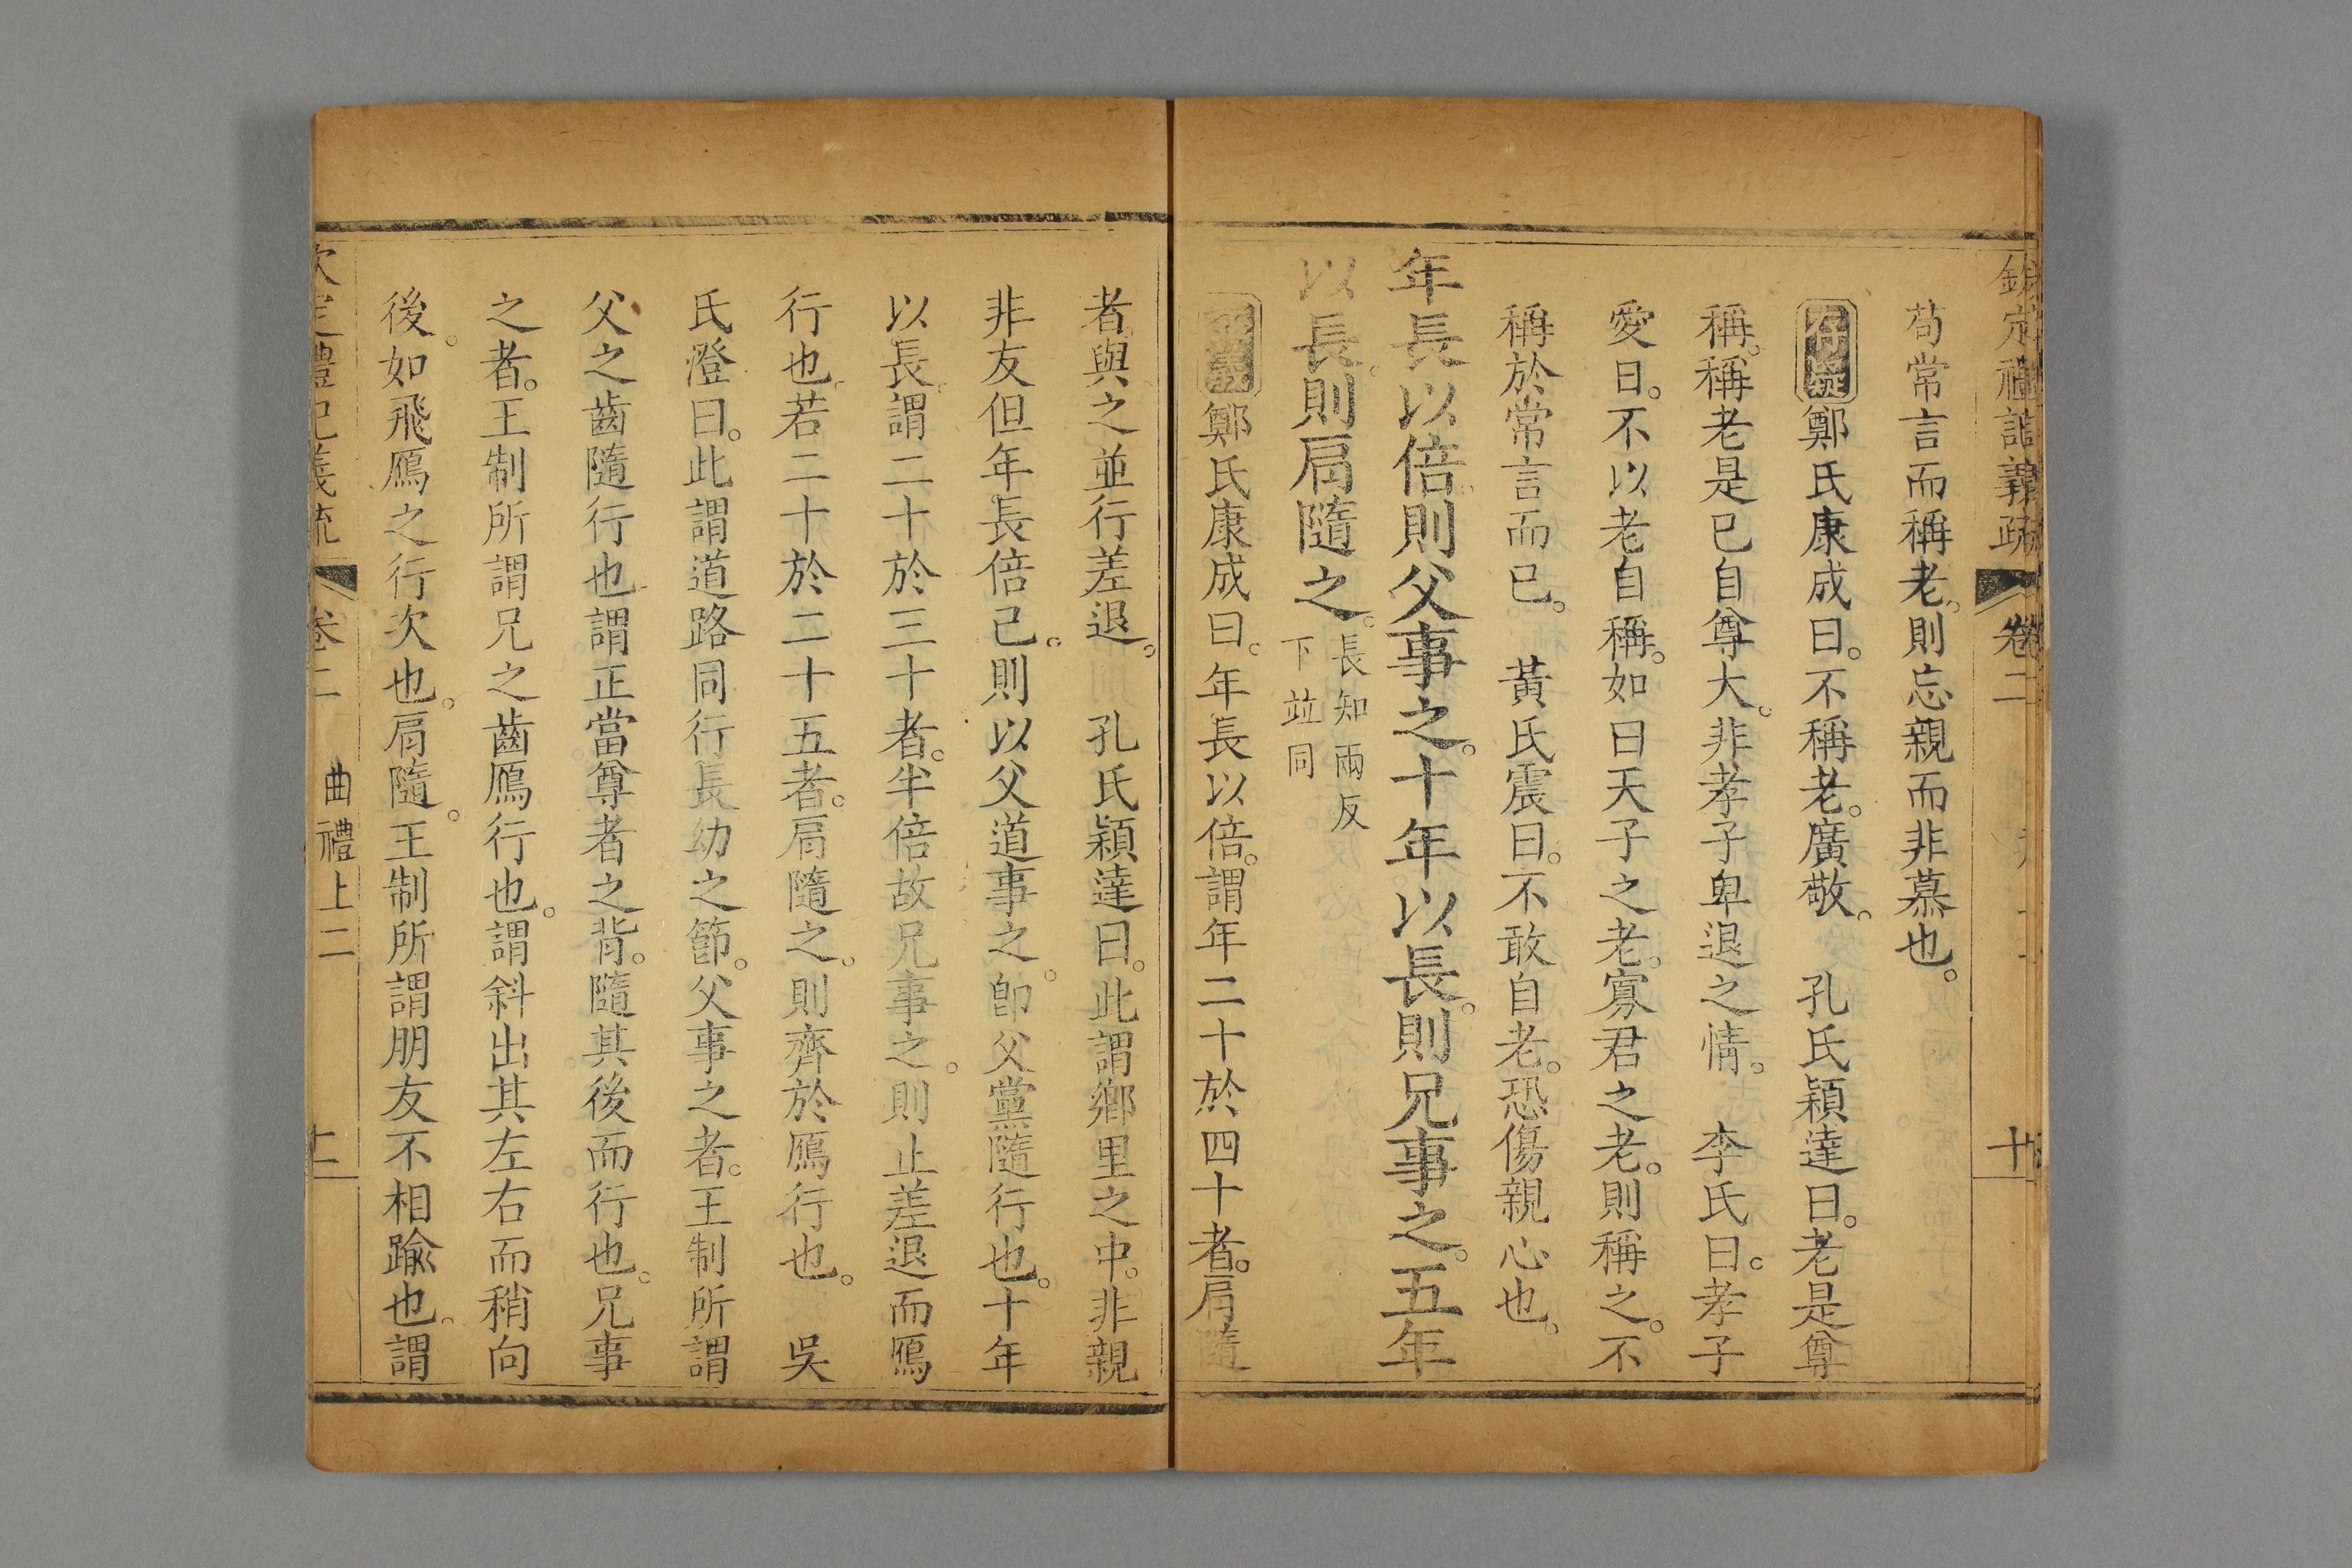 欽定禮記義疏 卷二 十
苟常言而稱老。則忘親而非慕也。
存疑鄭氏康成曰。不稱老。廣敬。 孔氏穎達曰。老是尊
稱。稱老是已自尊大。非孝子卑退之情。 李氏曰。孝子
愛日。不以老自稱。如曰天子之老。寡君之老。則稱之。不
稱於常言而已。 黃氏震曰。不敢自老。恐傷親心也。
年長以倍。則父事之。十年以長。則兄事之。五年
以長。則肩隨之。長知兩反
下並同
正義鄭氏康成曰。年長以倍。謂年二十於四十者。肩隨
者與之並行差退。 孔氏穎達曰。此謂鄉里之中。非親
非友但年長倍己。則以父道事之。即父黨隨行也。十年
以長。謂二十於三十者。半倍故兄事之。則止差退而鴈
行也。若二十於二十五者。肩隨之。則齊於鴈行也。 吳
氏澄曰。此謂道路同行長幼之節。父事之者。王制所謂
父之齒隨行也謂正當尊者之背。隨其後而行也。兄事
之者。王制所謂兄之齒鴈行也。謂斜出其左右而稍向
後。如飛鴈之行次也。肩隨。王制所謂朋友不相踰也。謂
欽定禮記義疏 卷二 曲禮上二